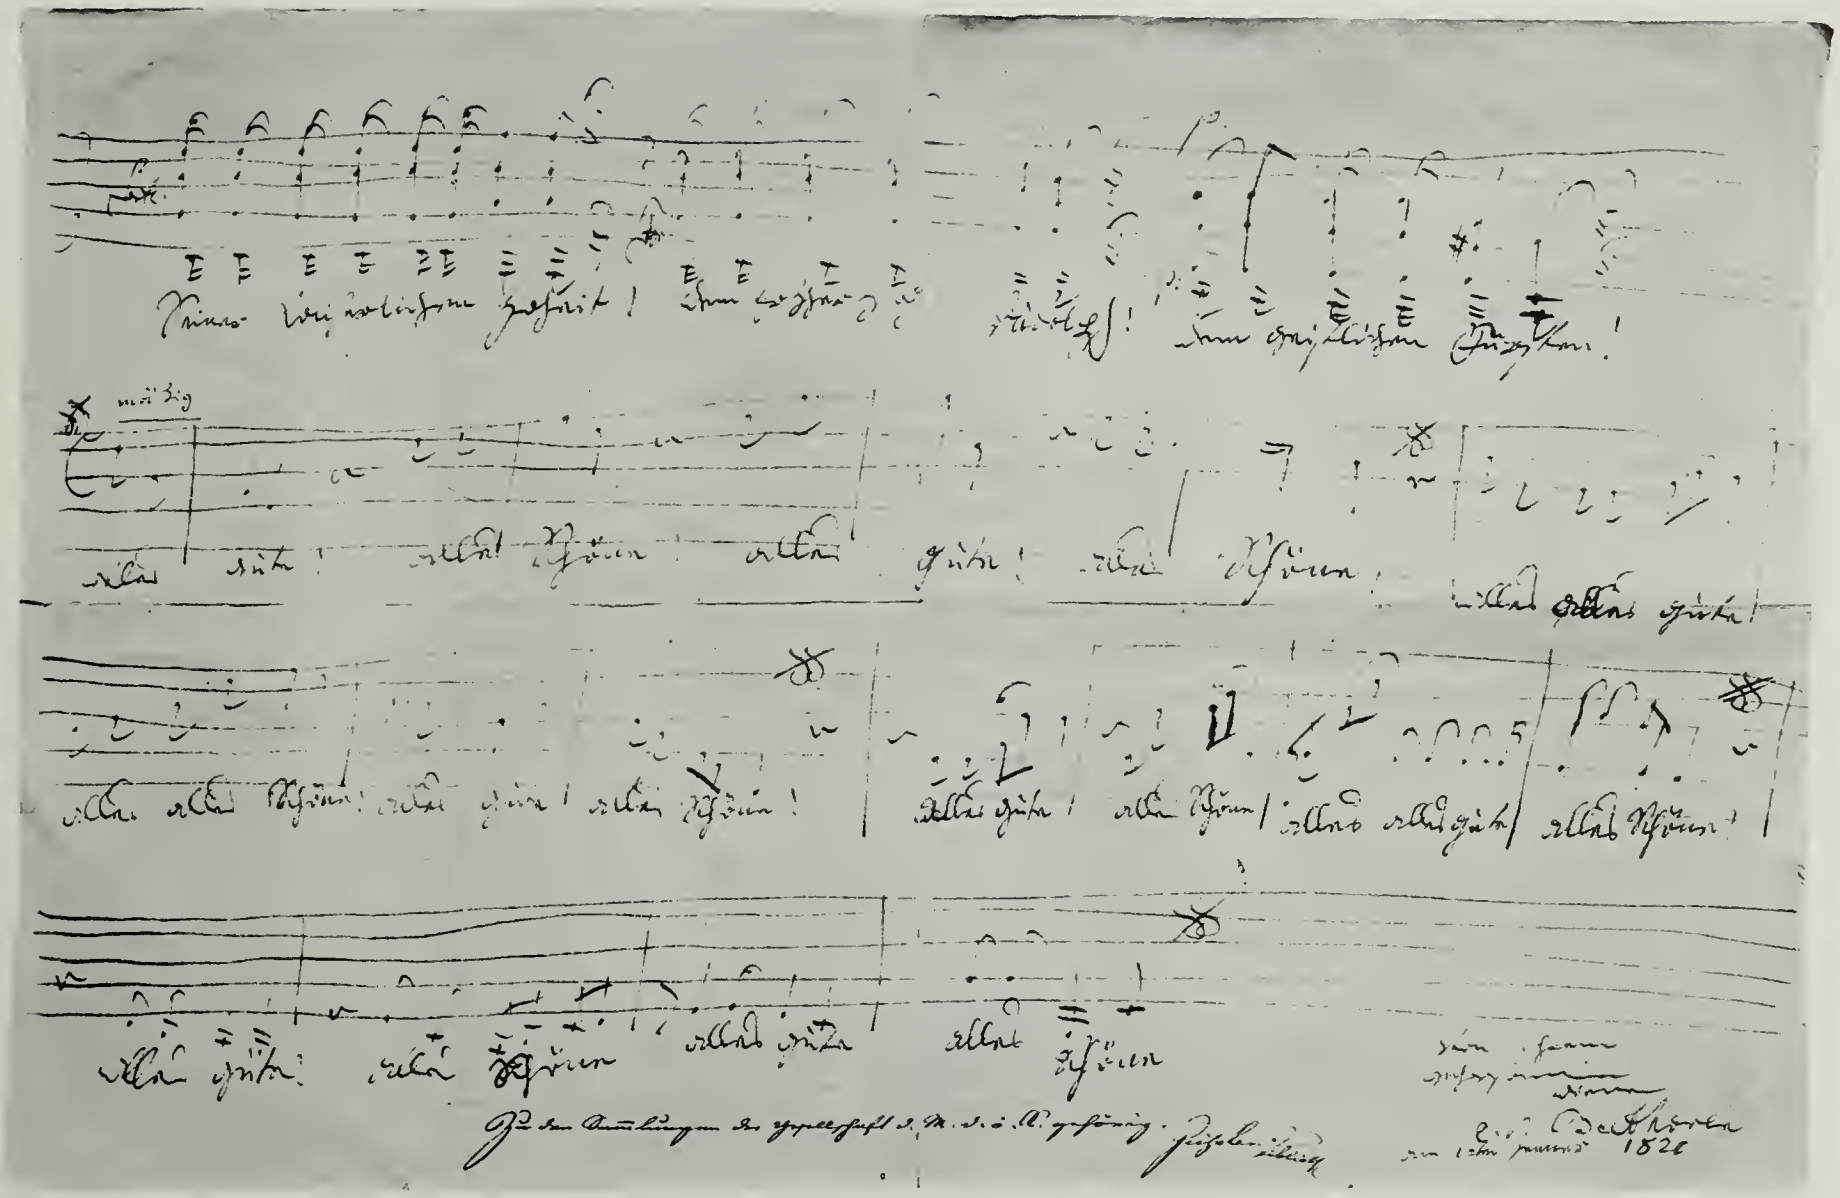 Seiner kaiserlichen Hoheit! dem Erzherzog Rudolph! dem geistlichen Fürsten!
mäßig
alles Gute! alles Schöne! alles Gute! alles Schöne! alles alles Gute!
alles alles Schöne! alles Gute! alles Schöne! alles Gute! alles Schöne! alles alles Gute! alles Schöne!
alles Gute! alles Schöne alles Gute alles Schöne
von
gehorsamsten
Diener
Zu den Sammlungen der Gesellschaft d. M. d. ö. K. gehörig.
L. v. Beethoven
am 1ten Jenner 1820